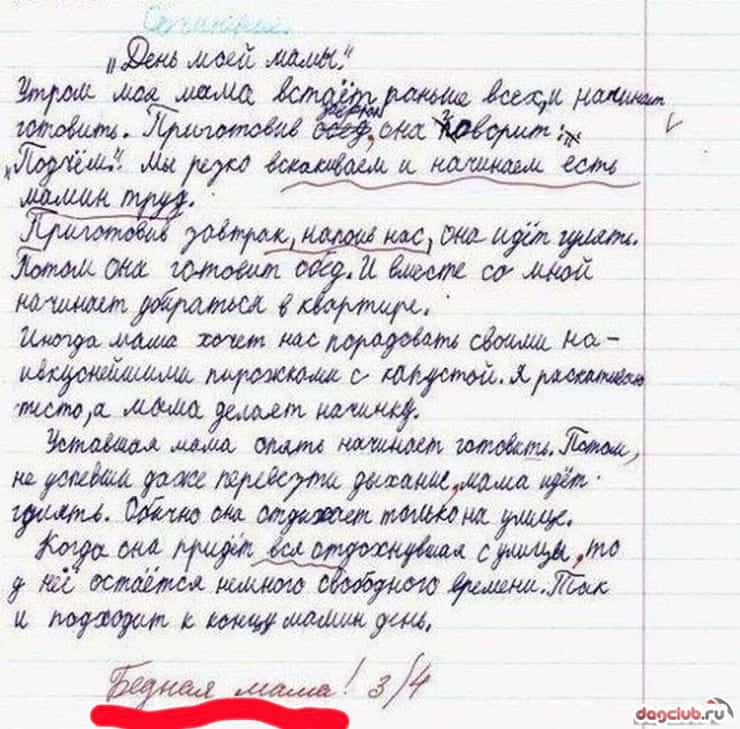 Сочинение.
„День моей мамы."
Утром моя мама встаёт раньше всех, и начинает
готовить. Приготовив обед, она говорит:
„Подъём". Мы резко вскакиваем и начинаем есть
мамин труд.
Приготовив завтрак, напоив нас, она идёт гулять.
Потом она готовит обед. И вместе со мной
начинает убираться в квартире.
Иногда мама хочет нас порадовать своими на-
ивкуснейшими пирожками с капустой. Я раскатываю
тесто, а мама делает начинку.
Уставшая мама опять начинает готовить. Потом,
не успевши даже перевезти дыхание, мама идёт
гулять. Обычно она отдыхает только на улице.
Когда она придёт вся отдохнувшая с улицы, то
у неё остаётся немного свободного времени. Так
и подходит к концу мамин день.
Бедная мама! 3/4
dagclub.ru